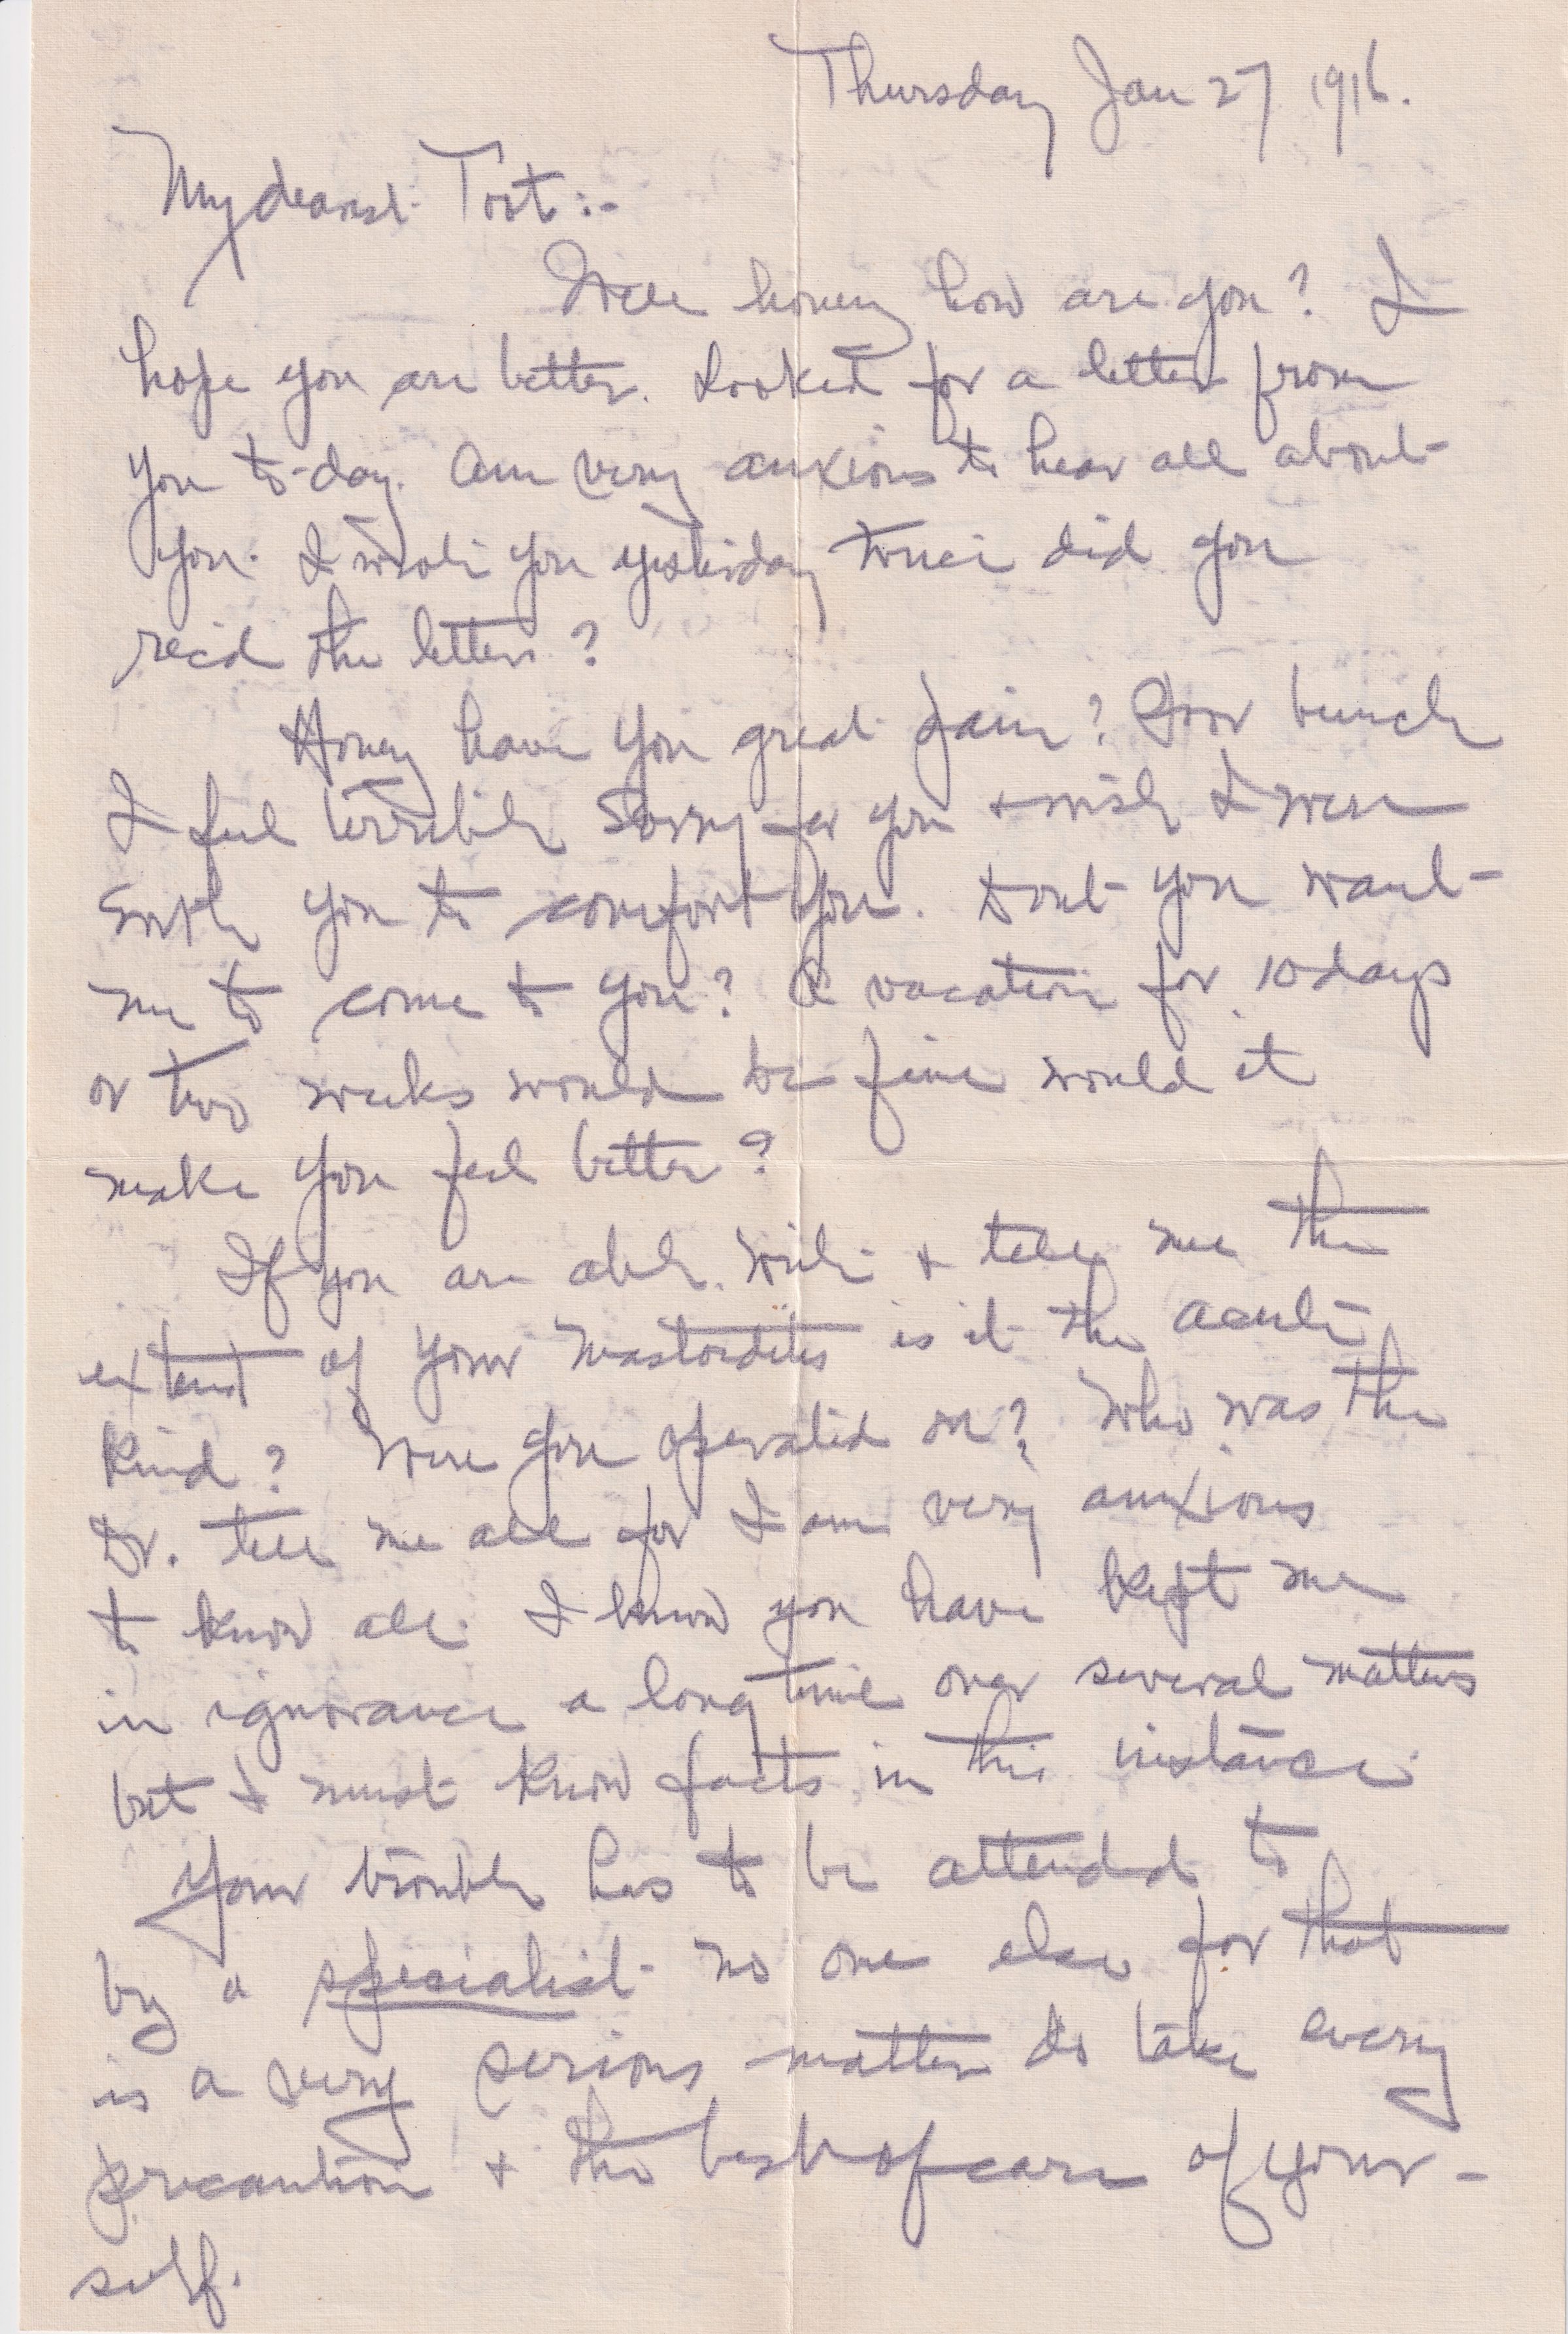 Thursday Jan 27 1916.
My dearest Tot:-
Well honey how are you? I
hope you are better. Looked for a letter from
you to-day. Am very anxious to hear all about
you. I wrote you yesterday twice did you
rec'd the letters?
Honey have you great pain? Poor bunch
I feel terribly sorry for you & wish I were
with you to comfort you. Don't you want
me to come to you? A vacation for 10 days
or two weeks would be fine would it
make you feel better?
If you are able. Write & tell me the
extent of your Mastoiditis is it the acute
kind? Were you operated on? Who was the
Dr. tell me all for I am very anxious
to know all. I know you have kept me
in ignorance a long time over several matters
but I must know facts in this instance.
Your trouble has to be attended to
by a specialist no one else for that
is a very serious matter do take every
precaution & the best of care of your-
self.